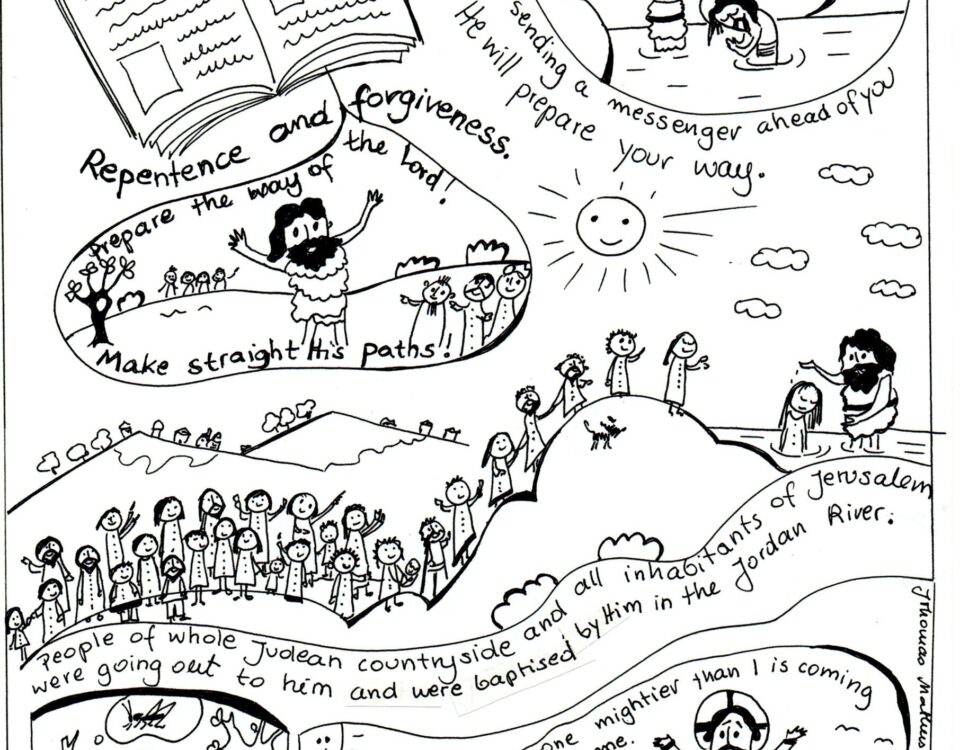 sending a messenger ahead of you
He will prepare your way.
Repentence and forgiveness.
Prepare the way of the Lord!
Make straight His paths!
People of whole Judean countryside and all inhabitants of Jerusalem
were going out to him and were baptised by Him in the Jordan River.
one mightier than I is coming
me.